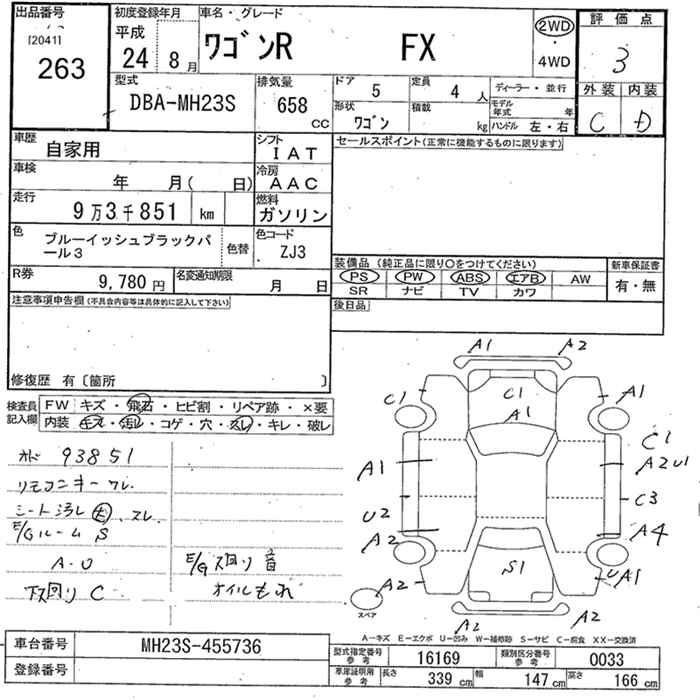 出品番号 初度登録年月 車名・グレード 評価点
[2041] 平成 2WD
263 24 8月 ワゴンR FX 4WD 3
型式 排気量 ドア 5 定員 4 人 ディーラー・並行 外装 内装
DBA-MH23S 658 CC 形状 ワゴン 積載 kg モデル年式 年 C D
ハンドル 左・右
車歴 自家用 シフト IAT セールスポイント(正常に機能するものに限ります)
車検 年 月( 日) 冷房 AAC
走行 9万3千851 km 燃料 ガソリン
色 ブルーイッシュブラックパール3 色替 色コード ZJ3
装備品 (純正品に限り○をつけてください) 新車保証書
R券 9,780円 名変通知期限 月 日
PS PW ABS エアB AW 有・無
SR ナビ TV カワ
注意事項申告欄(不具合内容等は具体的に記入して下さい) 後日品
修復歴 有〔箇所 〕
検査員記入欄 FW キズ・飛石・ヒビ割・リペア跡・×要
内装 キズ・汚レ・コゲ・穴・スレ・キレ・破レ
A1 A2
C1 C1 A1 A1
オド 93851
C1
A1 A2U1
リモコンキーワレ
C3
シート汚レ大、スレ
U2 A2 A4
E/Gルーム S
A・O E/G ス回り音
S1 UA1
下ス回り C オイルもれ
A2 A2 A2
スペア
A-キズ E-エクボ U-凹み W-補修跡 S-サビ C-腐食 XX-交換済
車台番号 MH23S-455736 型式指定番号参考 16169 類別区分番号参考 0033
登録番号 車庫証明用参考 長さ 339cm 幅 147cm 高さ 166cm